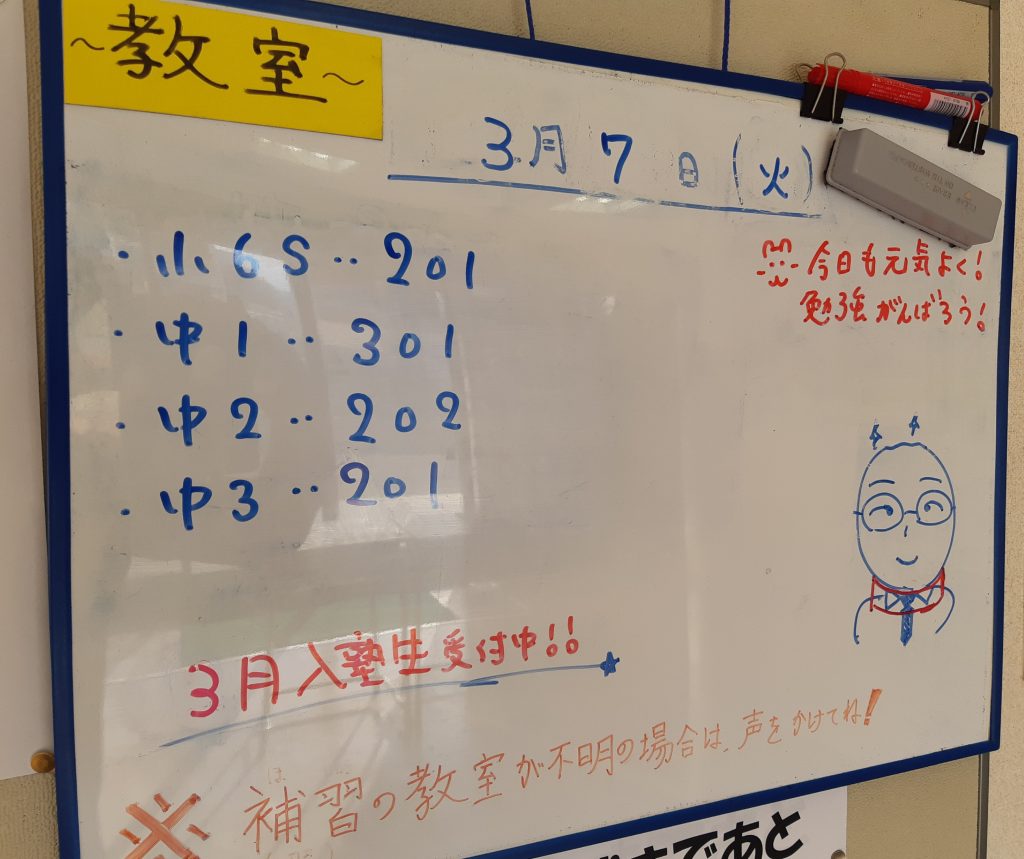 ～教室～
3月7日(火)
・小6S‥201
・中1‥301
・中2‥202
・中3‥201
今日も元気よく!
勉強がんばろう!
3月入塾生受付中!!
※補習の教室が不明の場合は、声をかけてね!
であと